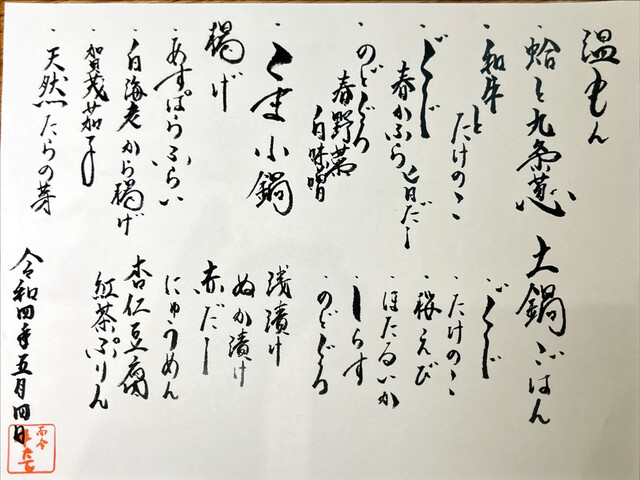 温もん
・蛤と九条葱
・和牛と
たけのこ
・ぐじ
春かぶら 旨だし
・のどぐろ
春野菜
白味噌
・くま小鍋
揚げ
・あすぱらふらい
・白海老から揚げ
・賀茂茄子
・天然たらの芽
土鍋ごはん
・ぐじ
・たけのこ
・桜えび
・ほたるいか
・しらす
・のどぐろ
浅漬け
ぬか漬け
赤だし
にゅうめん
杏仁豆腐
紅茶ぷりん
令和四年五月四日
而今